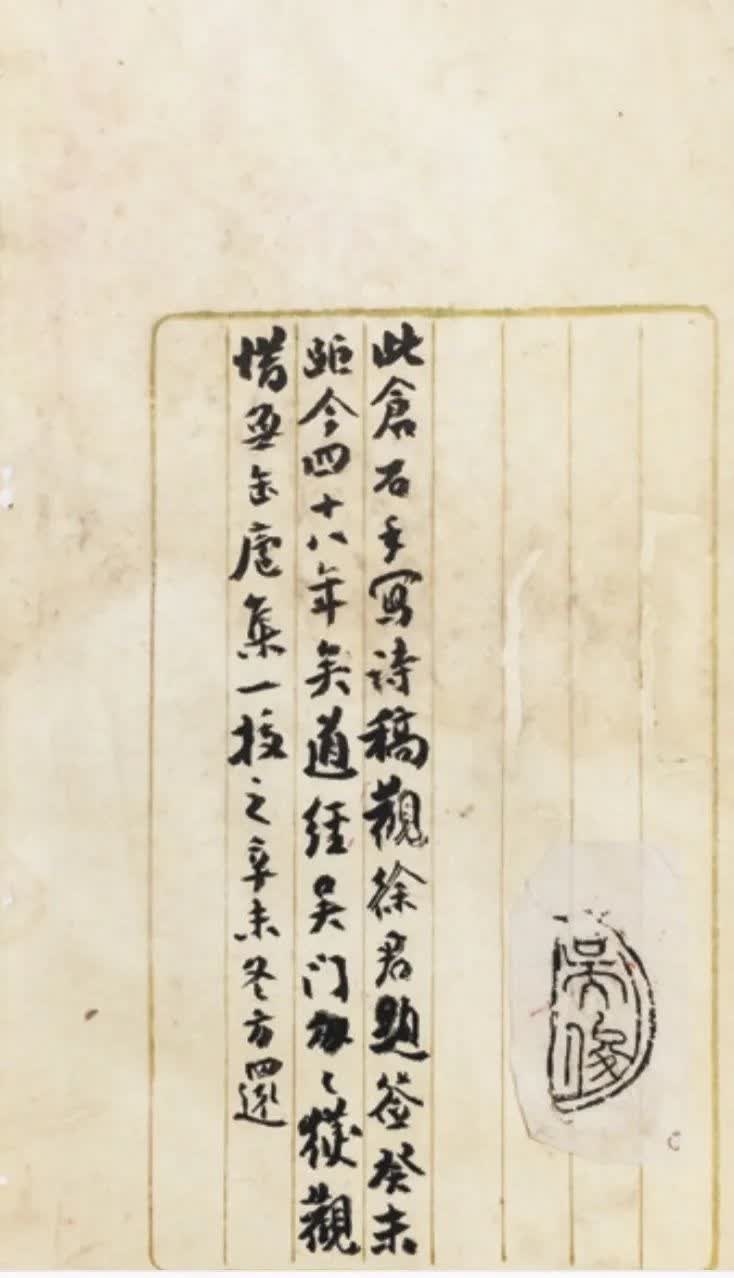 此倉石手寫詩稿觀徐君題簽癸未
距今四十八年矣道經吳門獲觀
惜無缶廬集一校之辛未冬方還
吳俊